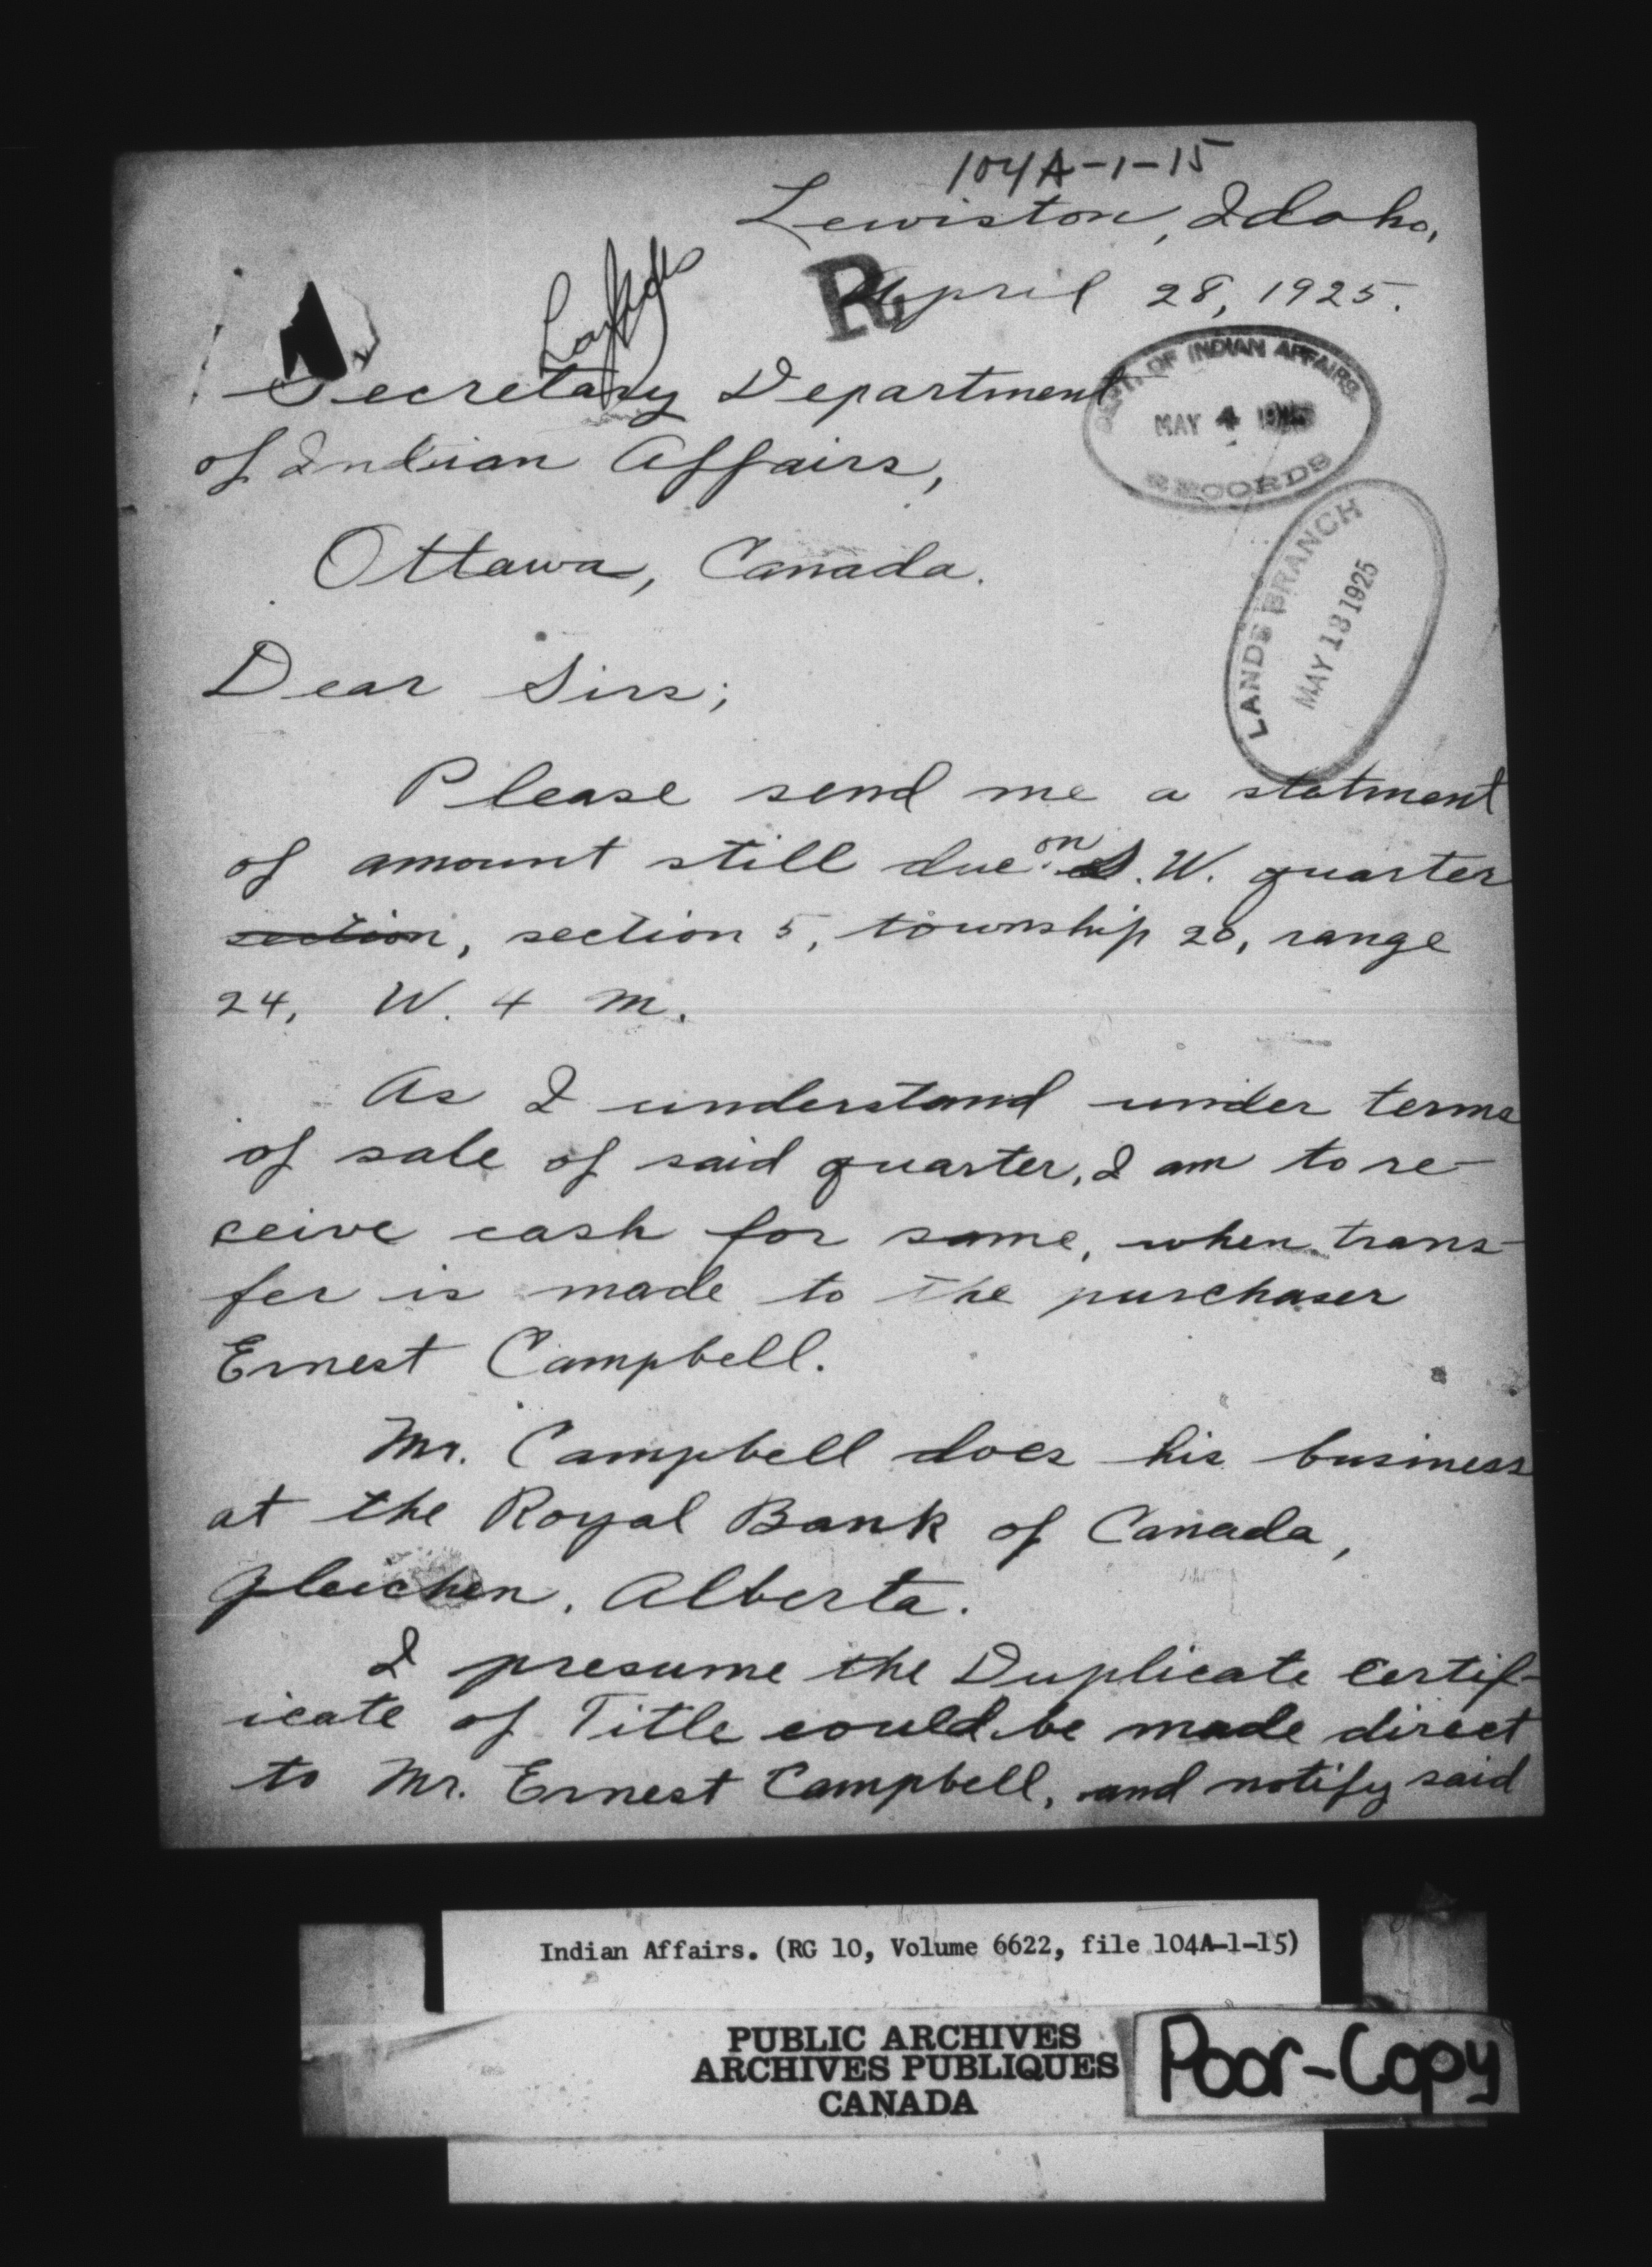 104A-1-15
Lewiston, Idaho,
R April 28, 1925.
Secretary Department
of Indian Affairs,
DEPT. OF INDIAN AFFAIRS
MAY 4 1925
RECORDS
Ottawa, Canada.
LANDS BRANCH
MAY 13 1925
Dear Sirs;
Please send me a statment
of amount still due on S.W. quarter
section, section 5, township 20, range
24, W. 4 M.
As I understand under terms
of sale of said quarter, I am to re-
ceive cash for same, when trans-
fer is made to the purchaser
Ernest Campbell.
Mr. Campbell does his business
at the Royal Bank of Canada,
Gleichen, Alberta.
I presume the Duplicate Certif-
icate of Title could be made direct
to Mr. Ernest Campbell, and notify said
Indian Affairs. (RG 10, Volume 6622, file 104A-1-15)
PUBLIC ARCHIVES
ARCHIVES PUBLIQUES
CANADA
Poor-Copy